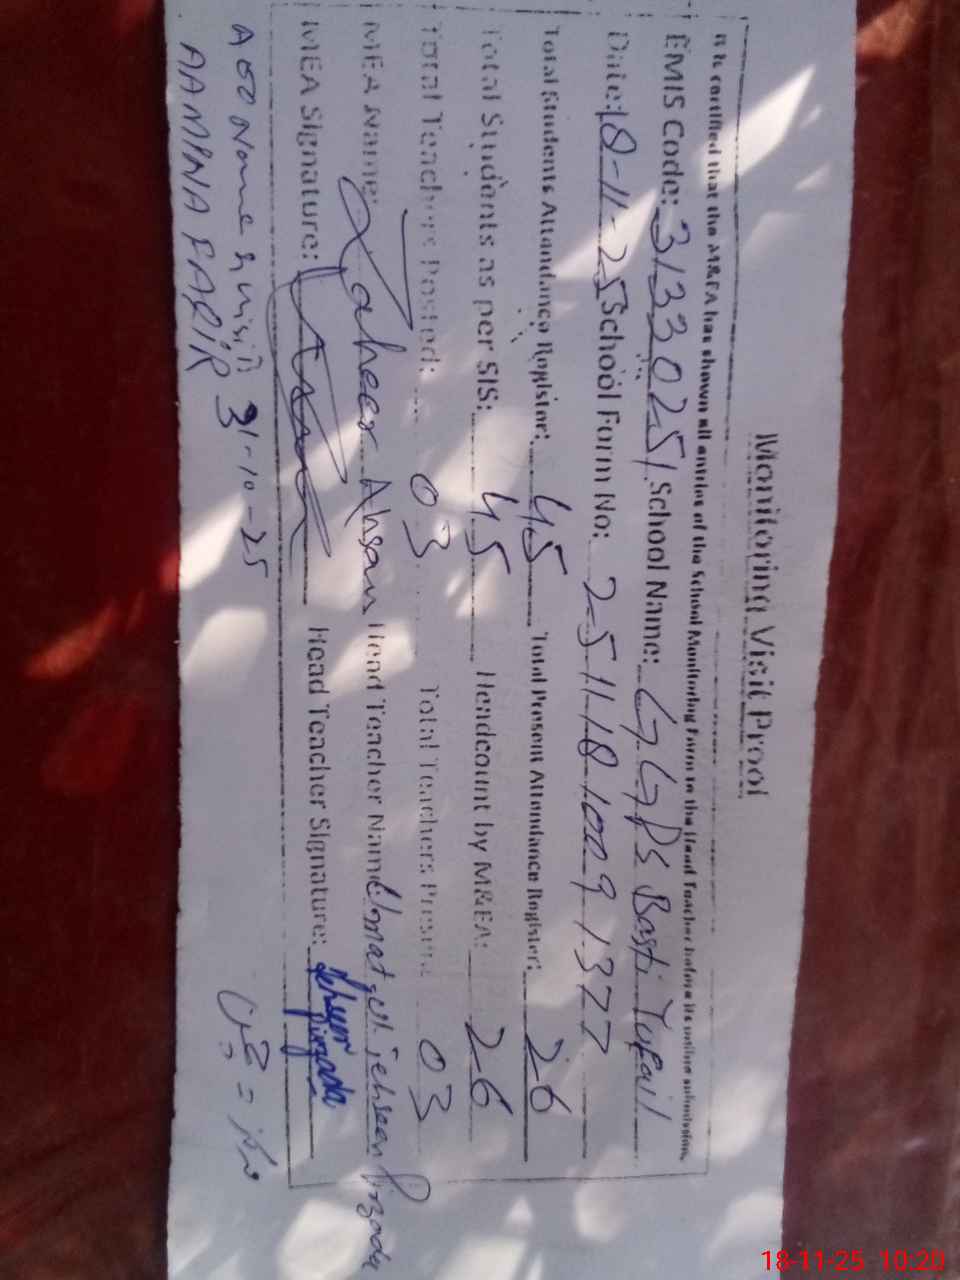 Monitoring Visit Proof
It is certified that the M&EA has shown all entries of the School Monitoring Form to the Head Teacher before its online submission.
EMIS Code: 31330251 School Name: GGPS Basti Tufail
Date: 18-11-25 School Form No: 25111810091377
Total Students Attendance Register: 45 Total Present Attendance Register: 26
Total Students as per SIS: 45 Headcount by M&EA: 26
Total Teachers Posted: 03 Total Teachers Present 03
MEA Name: Zaheer Ahsan Head Teacher Name Umat ul jehseen Pirzada
MEA Signature: Head Teacher Signature: Jehseen Pirzada
AEO Name & visit 31-10-25
AAMINA FARIR
18-11-25 10:20